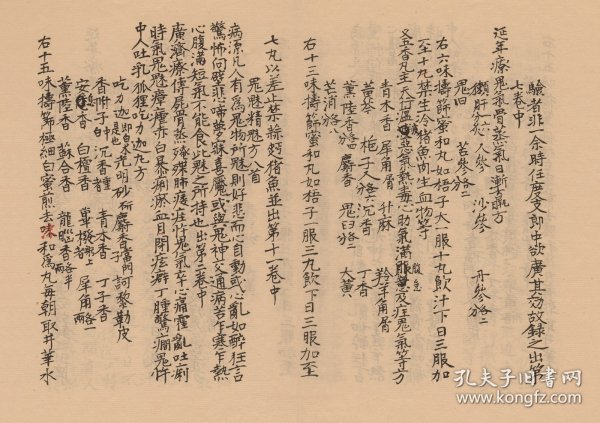 驗者非一余時任度支郎中欲廣其効故録之出第
七卷中
延年療鬼氣骨蒸氣日漸羸方
獺肝六分炙 人參 沙參 丹參各二
鬼臼 苦參各二
右六味擣篩蜜和丸如梧子大一服十丸飲汁下日三服加
至十九禁生冷猪魚肉生血物等
又五香丸主天行瘟 惡氣熱毒心肋氣滿 急及疰鬼氣等方
青木香 犀角屑 升麻 羚羊角屑
黃芩 梔子人各六 沉香 丁香
薰陸香各四 麝香 鬼臼各二 大黃
芒消各八
右十三味擣篩蜜和丸如梧子一服三丸飲下日三服加至
七丸以差止禁 猪魚並出第十一卷中
鬼魅精魅方八首
病源凡人有爲鬼物所魅則好悲而心自動或心亂如醉狂言
驚怖向壁悲啼夢寐喜魘或與鬼神交通病苦乍寒乍熱
心腹滿短氣不能食此魅之所持也出第二卷中
廣濟療傳屍骨蒸殗殜肺痿疰忤鬼氣卒心痛霍亂吐痢
時氣鬼魅瘴瘧赤白暴痢瘀血月閉痃癖丁腫驚癇鬼忤
中人吐乳狐狸吃力迦丸方
吃力迦 光明砂研 麝香 訶黎勒皮
香附子 沉香 青木香 丁子香
安息香 白檀香 蓽撥 犀角各一兩
薰陸香 蘇合香 龍腦香各半兩
右十五味擣篩極細白蜜煎去沫和爲丸每朝取井華水
孔夫子旧书网
www.kongfz.com